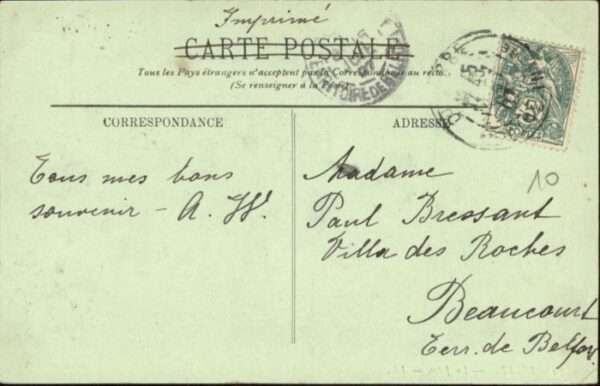 Imprimé
CARTE POSTALE
Tous les Pays étrangers n'acceptent pas la Correspondance au recto.
(Se renseigner à la Poste)
CORRESPONDANCE
ADRESSE
Tous mes bons
souvenir - A. W.
Madame
Paul Bressant
Villa des Roches
Beaucourt
Terr. de Belfor
10